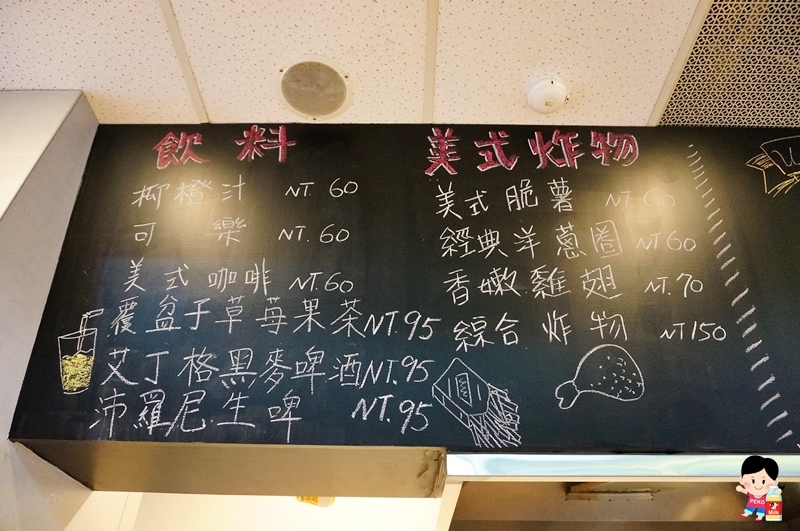 飲料
柳橙汁 NT. 60
可樂 NT. 60
美式咖啡 NT. 60
覆盆子草莓果茶 NT. 95
艾丁格黑麥啤酒 NT. 95
沛羅尼生啤 NT. 95
美式炸物
美式脆薯 NT. 60
經典洋蔥圈 NT 60
香嫩雞翅 NT. 70
綜合炸物 NT 150
PEKO
Milk